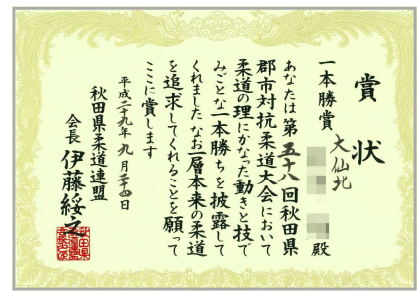 賞状
一本勝賞
大仙北
殿
あなたは第五十八回秋田県
郡市対抗柔道大会において
柔道の理にかなった動きと技で
みごとな一本勝ちを披露して
くれました なお一層本来の柔道
を追求してくれることを願って
ここに賞します
平成二十九年九月二十四日
秋田県柔道連盟
会長 伊藤綏之